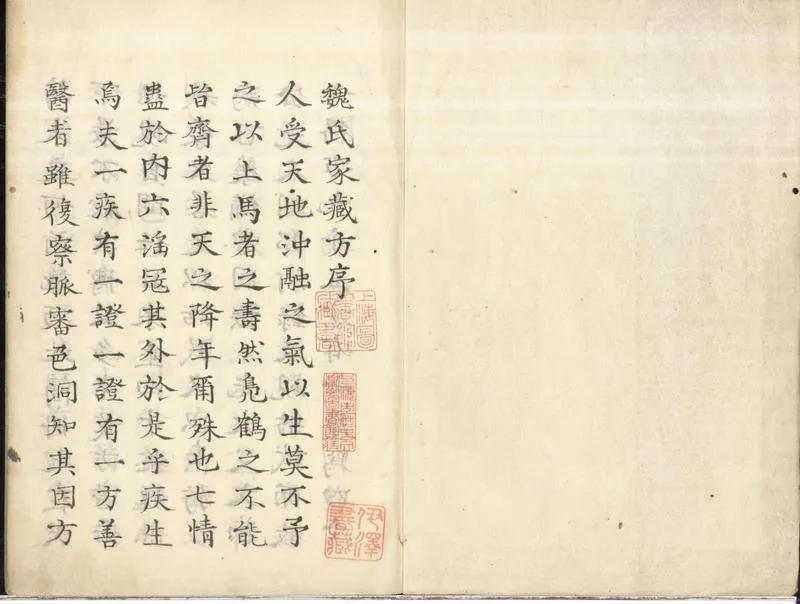 魏氏家藏方序
人受天地沖融之氣以生莫不予
之以上馬者之壽然鳧鶴之不能
皆齊者非天之降年爾殊也七情
蠱於内六滛冦其外於是乎疾生
焉夫一疾有一證一證有一方善
醫者雖復察脈審色洞知其因方
上海圖
書館
藏書
伊澤
書藏